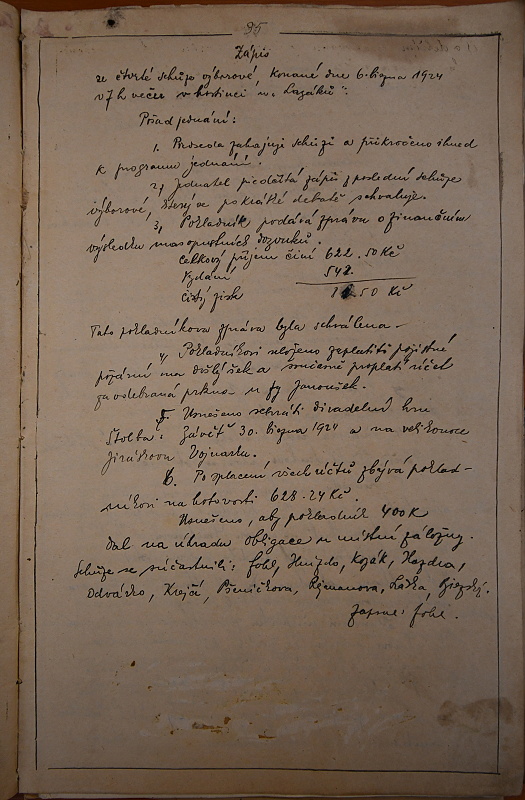 95
Zápis
ze čtvrté schůze výborové, konané dne 6. března 1924
v 7 h večer v hostinci u „Lazáků“.
Pořad jednání:
1. Předseda zahajuje schůzi a přikročeno ihned
k programu jednání.
2, Jednatel předčítá zápis z poslední schůze
výborové, který se po krátké debatě schvaluje.
3, Pokladník podává zprávu o finančním
výsledku masopustních
Celkový příjem činí 622.50 Kč
Vydání 542.
čistý zisk 50 Kč
Tato pokladníkova zpráva byla schválena –
4, Pokladníkovi uloženo zaplatiti pojistné
požární na a současně proplati účet
za odebraná prkna u fy Janoušek.
5. Usneseno sehráti divadelní hru
Štolba: Závěť 30. března 1924 a na velikonoce
Jiráskovu Vojnarku.
6. Po splacení všech účtů zbývá poklad-
níkovi na hotovosti 628.24 Kč.
Usneseno, aby pokladník 400 K
dal na úhradu obligace u místní záložny.
Schůze se súčastnili: Fohl, Hnízdo, Koják, Hazdra,
Odvárko, Krejčí, Pšeničkova, Láška,
Zapsal: Fohl.